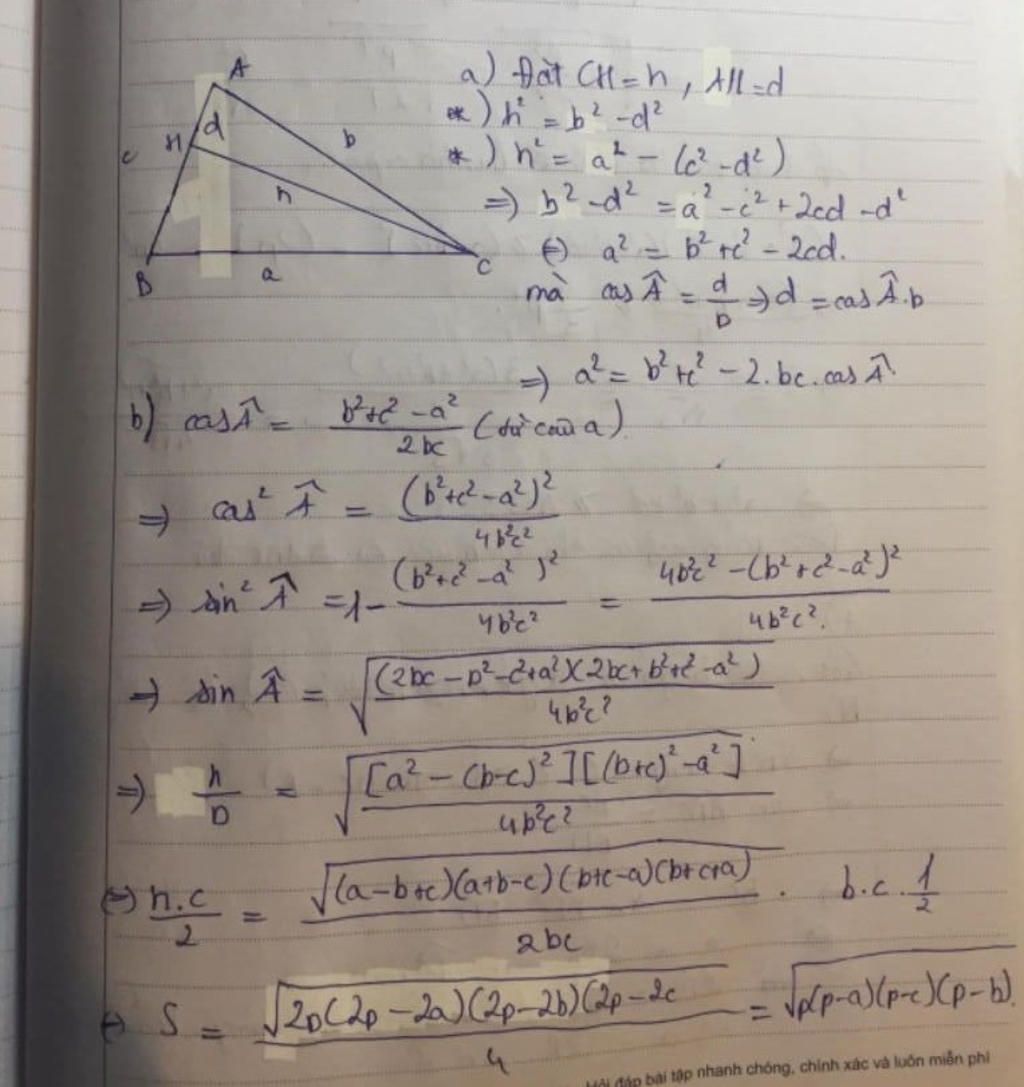 A
H d
c
b
h
B
a
C
a) Đặt CH = h, AH = d
*) h² = b² - d²
*) h² = a² - (c² - d²)
=> b² - d² = a² - c² + 2cd - d²
(=) a² = b² + c² - 2cd.
mà cos Â = d/b => d = cos Â.b
=> a² = b² + c² - 2.bc.cos Â.
b) cos Â = (b² + c² - a²)/2bc (từ câu a).
=> cos² Â = (b² + c² - a²)²/4b²c²
=> sin² Â = 1 - (b² + c² - a²)²/4b²c² = 4b²c² - (b² + c² - a²)²/4b²c².
=> sin Â = √(2bc - b² - c² + a²)(2bc + b² + c² - a²)/4b²c²
=> h/b = √[a² - (b-c)²][(b+c)² - a²]/4b²c²
(=) h.c/2 = √(a-b+c)(a+b-c)(b+c-a)(b+c+a)/2bc . b.c.1/2
(=) S = √2p(2p-2a)(2p-2b)(2p-2c/4 = √p(p-a)(p-c)(p-b).
Hỏi đáp bài tập nhanh chóng, chính xác và luôn miễn phí